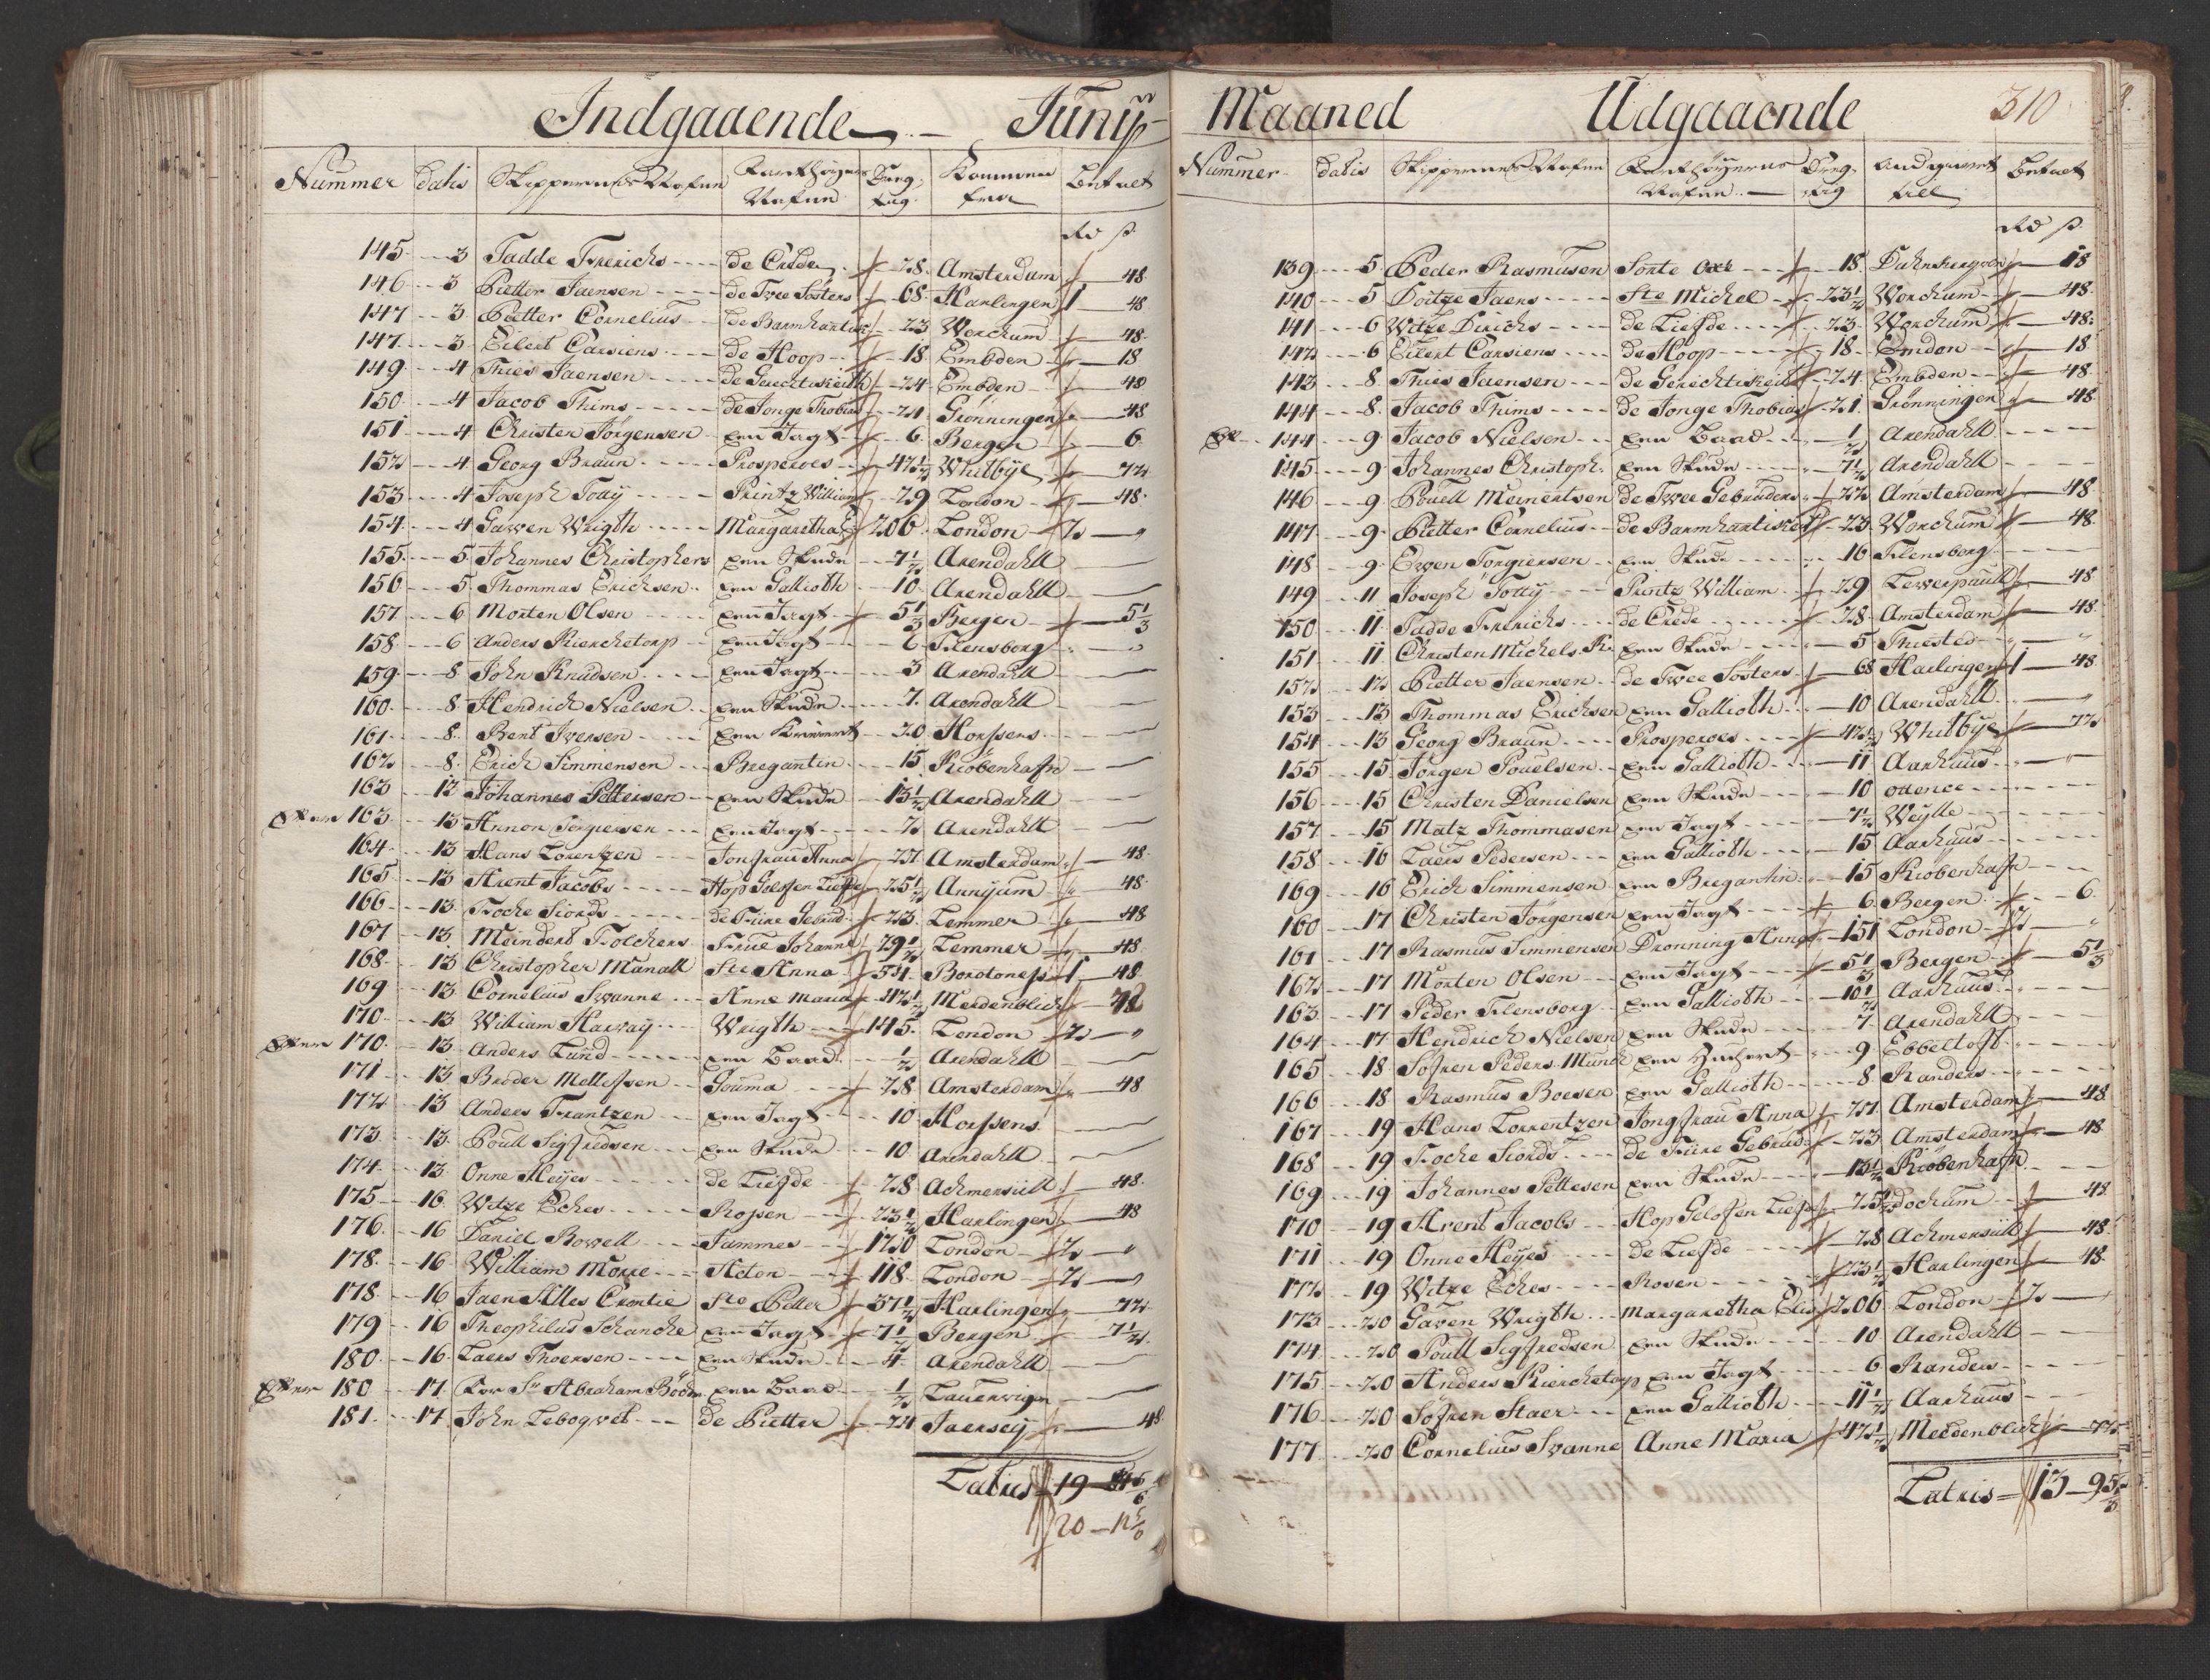 Indgaaende Junij
Nummer datis Skippernes Nafne Farthøyers Nafne Dreg: tig Kommen fra betalt
Rd s
145 3 Tadde Frerichs de 28 Amsterdam 48
146 3 Pietter Jaensen de Tvee Søsters 68 Harlingen 1 48
147 3 Pietter Cornelius de Barmhartik 23 Worchum 48
147 3 Eilert Carsiens de Hoop 18 Embden 18
149 4 Thies Jaensen de Gerechtikeith 24 Embden 48
150 4 Jacob Thims de Jonge Thobias 21 Grönningen 48
151 4 Christen Jørgensen een Jagt 6 Bergen 6
152 4 Georg Braun Prosperoes 47½ Whitbye 72
153 4 Joseph Totty Printz William 29 London 48
154 4 Gawen Wrigth Margaretha E 206 London 2 "
155 5 Johannes Christophers een Skude 7½ Arendahll
156 5 Thommas Erichsen een Gallioth 10 Arendahll
157 6 Morten Olsen een Jagt 5⅓ Bergen 5⅓
158 6 Anders Kierchetorp een Jagt 6 Flensborg "
159 8 John Knudsen een Jagt 3 Arendahll
160 8 Hendrich Nielsen een Skude 7 Arendahll
161 8 Bent Iversen een Krejert 20 Horssens
162 8 Erich Simmensen Bregantin 15 Kiöbenhafn
163 12 Johannes Pettersen een Skude 13½ Arendahll
163 13 Annon Torgiersen een Jagt 2 Arendahll
164 13 Hans Lorentzen Jonfrau Anna 27 Amsterdam 48
165 13 Arent Jacobs Hop Goloffen Liefde 25½ Annyum 48
166 13 Focke Siords de Fiire Gebrud 23 Lemmer 48
167 13 Meindert Folchers Frue Johanna 29½ Lemmer 48
168 13 Christopher Manall Ste Anna 54 Borotoness 1 48
169 13 Cornelius Svanne Anne Maria 47½ Medenblick 72
170 13 William Harway Wrigth 145 London 2 "
170 13 Anders Lund een Baad ½ Arendahll
171 13 Broder Mellefsen Gouma 28 Amsterdam 48
172 13 Anders Frantzen een Jagt 10 Horssens
173 13 Poull Sigfredsen een Skude 10 Arendahll
174 13 Onne Heyes de Liefde 28 Achmersiill 48
175 16 Witze Eches Rosen 23½ Harlingen 48
176 16 Daniel Bowell Jammes 120 London 2 "
178 16 William Morre Acton 118 London 2 "
178 16 Jaen Alles Crontie Ste Petter 37½ Harlingen 72
179 16 Theophilus Schanche een Jagt 7½ Bergen 7½
180 16 Laers Thoersen een Skude 4 Arendahll
180 17 For Sr Abraham Böchm een Baad ½ Laurvigen
181 17 John Lebogvet de Pietter 24 Jaersey 48
Latus 19 45/6
20 12 5/6
Maaned Udgaaende 310
Nummer datis Skippernes Nafne Farthöyernes Nafne Dreg: tig Andgivet till betalt
Rd s
139 5 Peder Rasmusen Sorte Oxe 18 18
140 5 Doitze Jaens Ste Michel 23½ Worchum 48
141 6 Witze Dirichs de Liefde 23 Worchum 48
142 6 Eilert Carsiens de Hoop 18 Emden 18
143 8 Thies Jaensen de Gerechtikeit 24 Embden 48
144 8 Jacob Thims de Jonge Thobias 21 Grönningen 48
144 9 Jacob Nielsen een Baad ½ Arendahll
145 9 Johannes Christoph: een Skude 7½ Arendahll
146 9 Pouell Meinertsen de Tvee Gebruders 22 Amsterdam 48
147 9 Pietter Cornelius de Barmhartiket 23 Worchum 48
148 9 Ewen Torgiersen een Skude 16 Flensborg
149 11 Joseph Totty Printz William 29 Leverpaull 48
150 11 Tadde Frerichs de Crede 28 Amsterdam 48
151 11 Christen Michels. K. een Skude 5 Thiested "
152 12 Pietter Jaensen de Tvee Söstters 68 Harlingen 1 48
153 13 Thommas Erichsen een Gallioth 10 Arendahll "
154 13 Georg Braun Prosperoes 47½ Whitbye 72
155 15 Jorgen Pouelsen een Gallioth 11 Aarhuus
156 15 Christen Danielsen een Skude 10 Ottence
157 15 Matz Thommasen een Jagt 7½ Weylle
158 16 Laers Pedersen een Gallioth 15 Aarhuus
169 16 Erich Simmensen een Bregantin 15 Kiöbenhafn
160 17 Christen Jörgensen een Jagt 6 Bergen 6
161 17 Rasmus Simmensen Dronning Anna 151 London 2 "
162 17 Morten Olsen een Jagt 5⅓ Bergen 5⅓
163 17 Peder Flensborg een Gallioth 10½ Aarhuus
164 17 Hendrich Nielsen een Skude 7 Arendahll
165 18 Söfren Peders. Munch een Huchert 9 Ebbeltoft
166 18 Rasmus Boesen een Gallioth 8 Randers
167 19 Hans Lorrentzen Jongfrau Anna 27 Amsterdam 48
168 19 Focke Siords de Fiire Gebrud 23 Amsterdam 48
169 19 Johannes Pettesen een Skude 13½ Kiöbenhafn
170 19 Arent Jacobs Hop Goloffen Liefde 25½ Dochum 48
171 19 Onne Heyes de Liefde 28 Achmersiill 48
172 19 Witze Eches Rosen 23½ Harlingen 48
173 20 Gaven Wrigth Margaretha Elis 206 London 2
174 20 Poull Sigfredsen een Skude 10 Arendahll
175 20 Anders Kierchetorp een Jagt 6 Randers
176 20 Sofren Staer een Gallioth 11½ Aarhuus
177 20 Cornelius Svanne Anne Maria 47½ Medenblich 72
Latris 13 95⅓